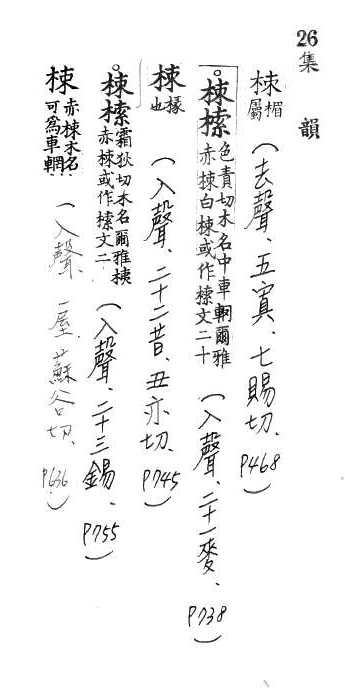 26 集 韻
栜 楣屬 (去聲、五寘、七賜切. P468)
。栜㮦 色責切木名中車輞爾雅
赤栜白栜或作㮦文二十 (入聲、二十一麥、P738)
栜 椽也 (入聲、二十二昔、丑亦切. P745)
。栜㮦 霜狄切木名爾雅桋
赤栜或作㮦文二 (入聲、二十三錫、P755)
梀 赤梀木名
可為車輞 (入聲、一屋、蘇谷切. P636)